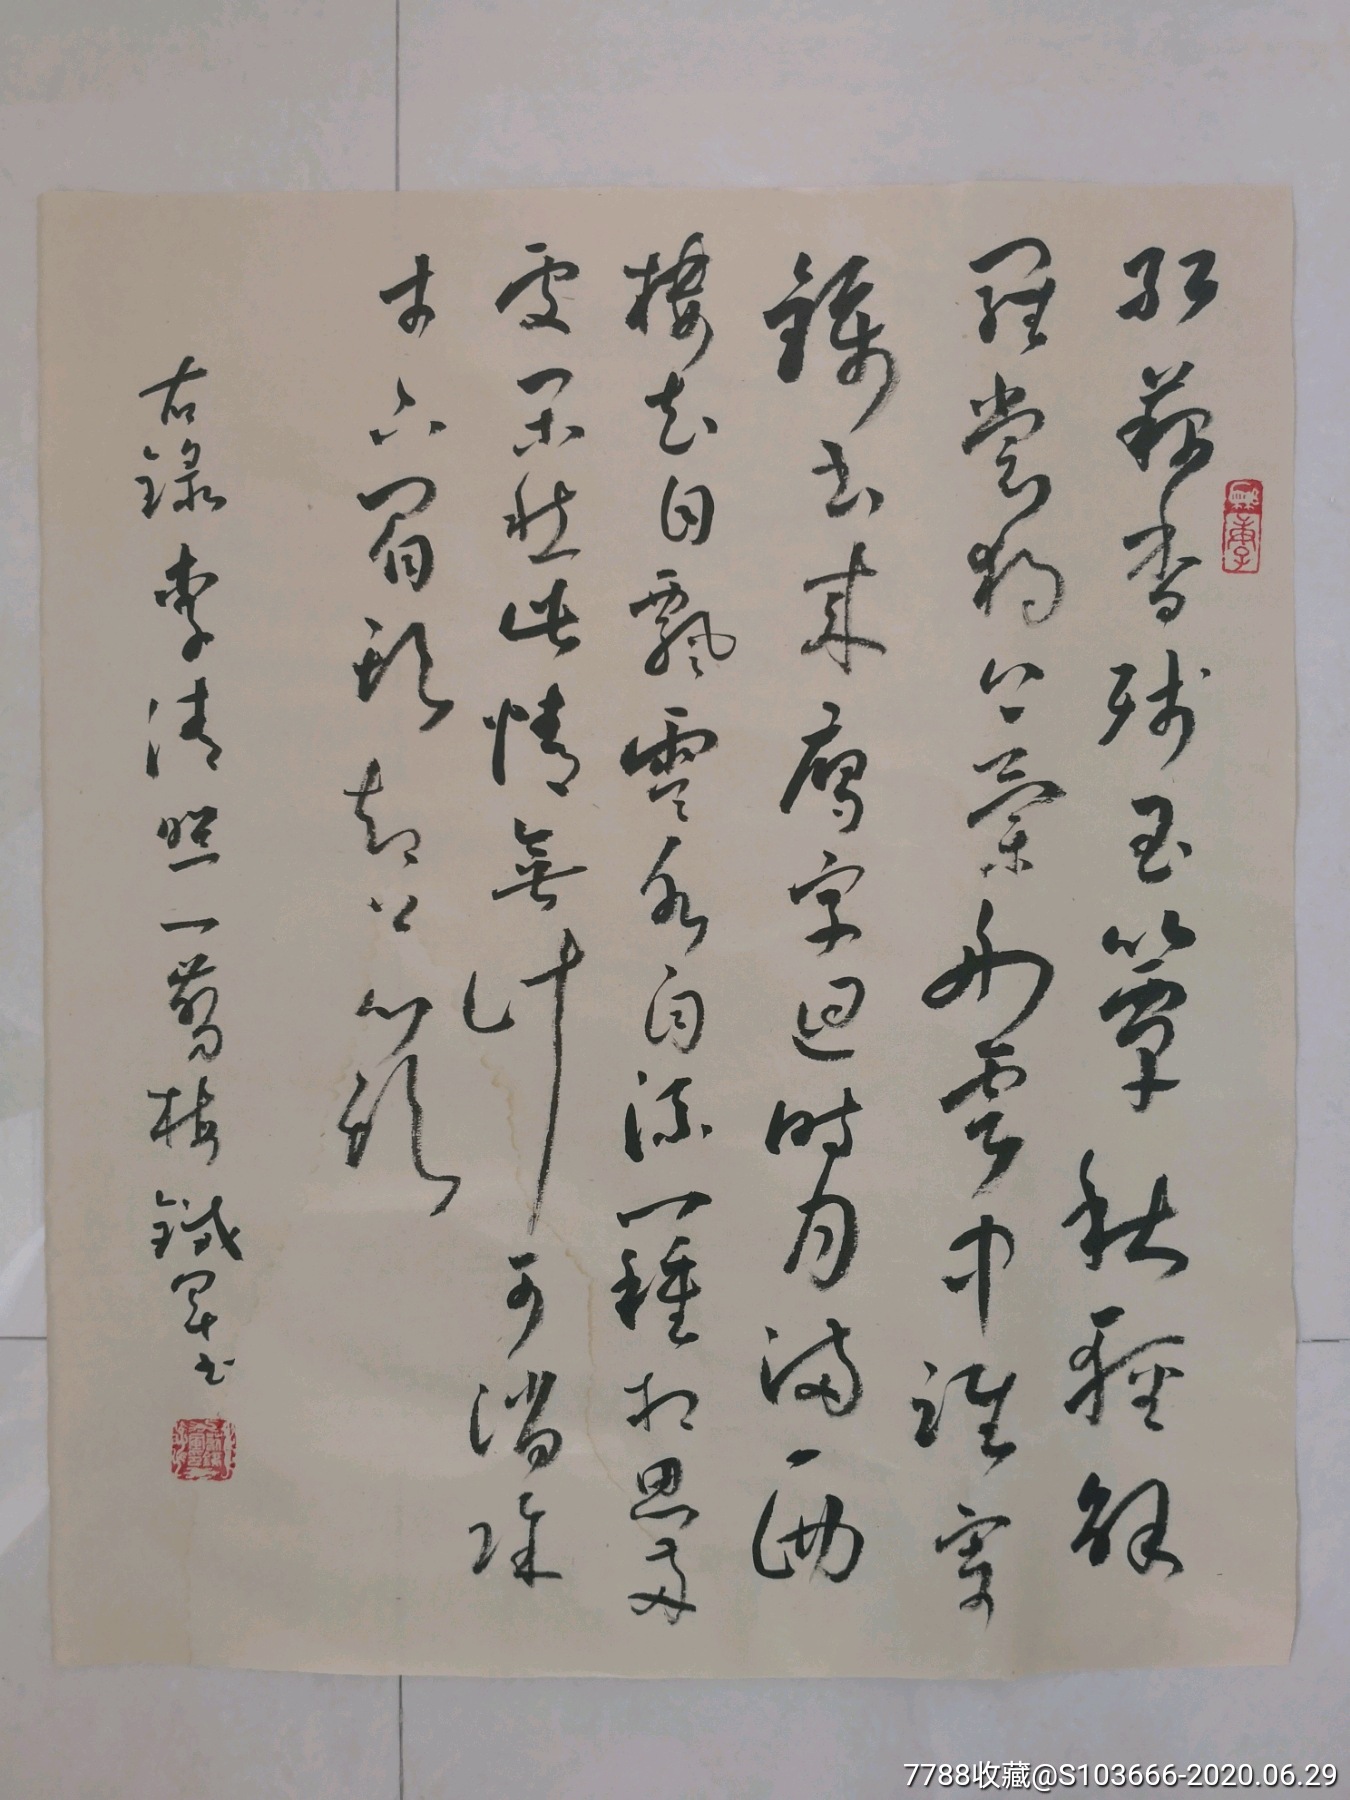 紅藕香殘玉簟秋輕解
羅裳獨上蘭舟雲中誰寄
錦書來雁字回時月滿西
樓花自飄零水自流一種相思兩
處閒愁此情無計可消除
才下眉頭卻上心頭
右錄李清照一剪梅鐵軍书
7788收藏@S103666-2020.06.29